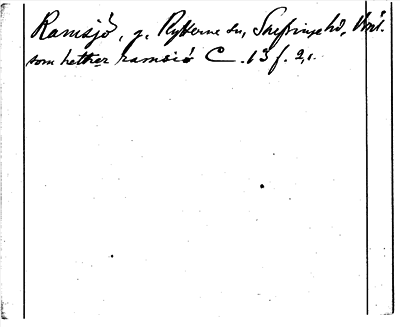 Ramsjö, g, Rytterne sn, Snefringe hd, Vml.
som hetther ramsiö C .13 f. 2,.